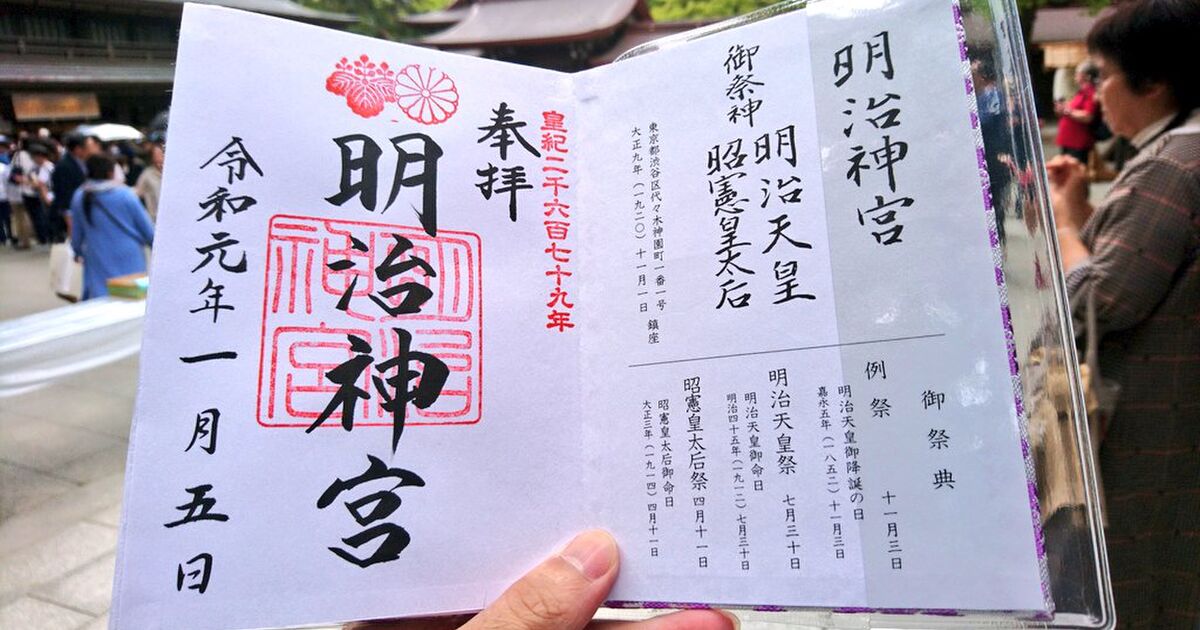 明治神宮
御祭神
明治天皇
昭憲皇太后
東京都渋谷区代々木神園町一番一号
大正九年（一九二〇）十一月一日 鎮座
御祭典
例祭 十一月三日
明治天皇御降誕の日
嘉永五年（一八五二）十一月三日
明治天皇祭 七月三十日
明治天皇御命日
明治四十五年（一九一二）七月三十日
昭憲皇太后祭 四月十一日
昭憲皇太后御命日
大正三年（一九一四）四月十一日
皇紀二千六百七十九年
奉拝
明治神宮
明治神宮
令和元年一月五日